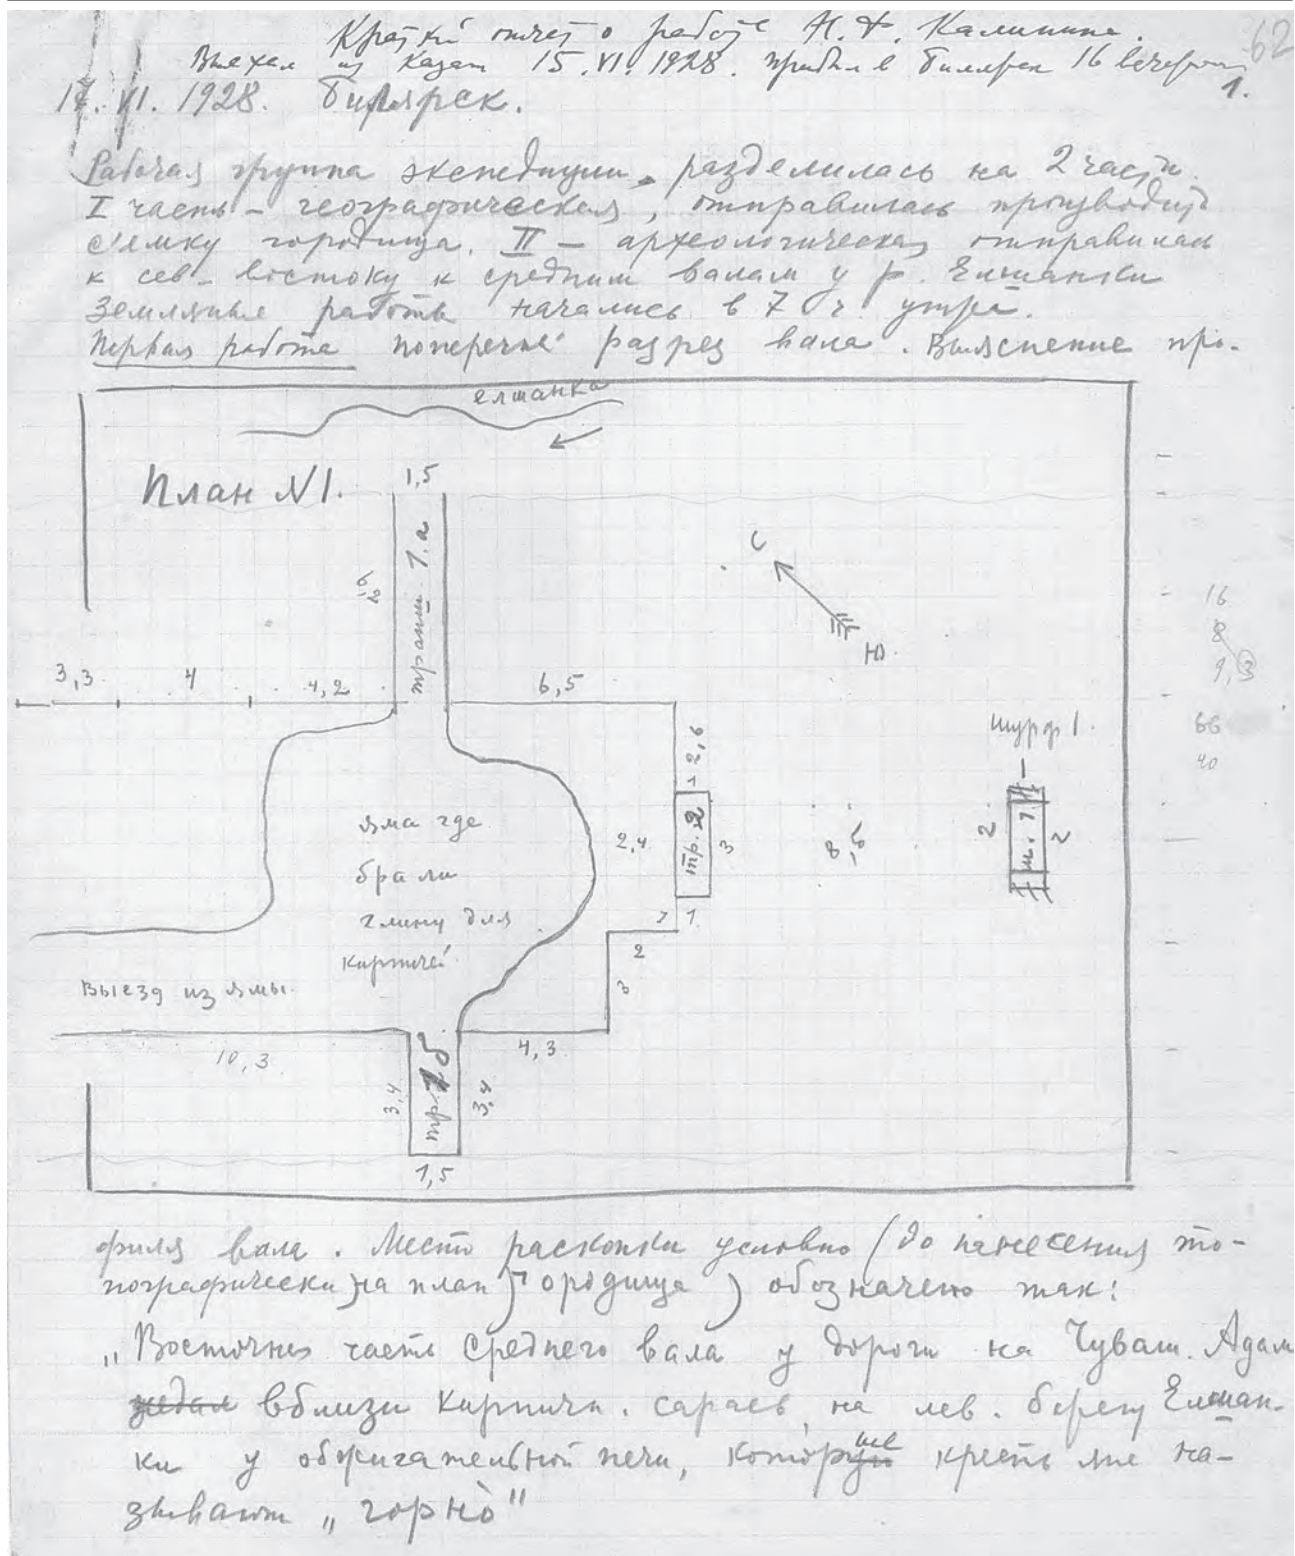 Краткий отчет о работе Н. Ф. Калинина.
62
Выехал из Казани 15.VI.1928. прибыл в Билярск 16 вечером
1.
17.VI.1928. Билярск.
Рабочая группа экспедиции разделилась на 2 части.
I часть – географическая, отправилась производить
с'емку городища. II – археологическая отправилась
к сев-востоку к средним валам у р. Елшанки
Земляные работы начались в 7 ч утра.
Первая работа поперечный разрез вала. Выяснение про-
елшанка
План N1.
1,5
транш 1.а
С
Ю.
16
8
9,3
66
40
3,3
4
4,2
6,5
2,6
шурф 1.
яма где
брали
глину для
кирпичей
2,4
тр. 2
3
8,6
2
ш. 1
2
1
2
3
Выезд из ямы.
10,3
4,3
3,4
тр. 1б
3,4
1,5
филя вала. Место раскопки условно (до нанесения то-
пографически на план городища) обозначено так:
„Восточная часть Среднего вала у дороги на Чуваш. Адам
вблизи кирпичн. сараев на лев. берегу Елшан-
ки у обжигательной печи, которую крестьяне на-
зывают „горно"